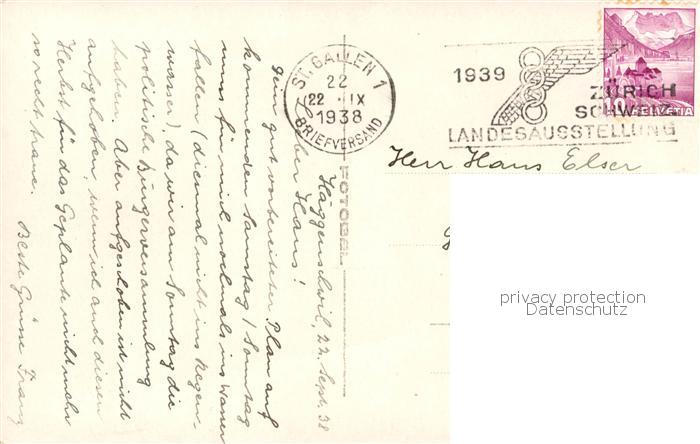 ST. GALLEN 1
22
22. IX
1938
BRIEFVERSAND
1939
ZÜRICH
SCHWEIZ.
LANDESAUSSTELLUNG
10 HELVETIA
Herr Hans Elser
FOTOGEL
Häggenschwil, 22. Sept. 38
Lieber Hans!
Dein gut vorbereiteter Plan auf
kommenden Samstag/Sonntag
muss für mich nochmals ins Wasser
fallen (diesmal nicht ins Regen-
wasser), da wir am Sonntag die
politische Bürgerversammlung
haben. Aber aufgeschoben ist nicht
aufgehoben wenn ich auch diesen
Herbst für das Geplante nicht mehr
so recht traue.
Beste Grüsse Franz
privacy protection
Datenschutz